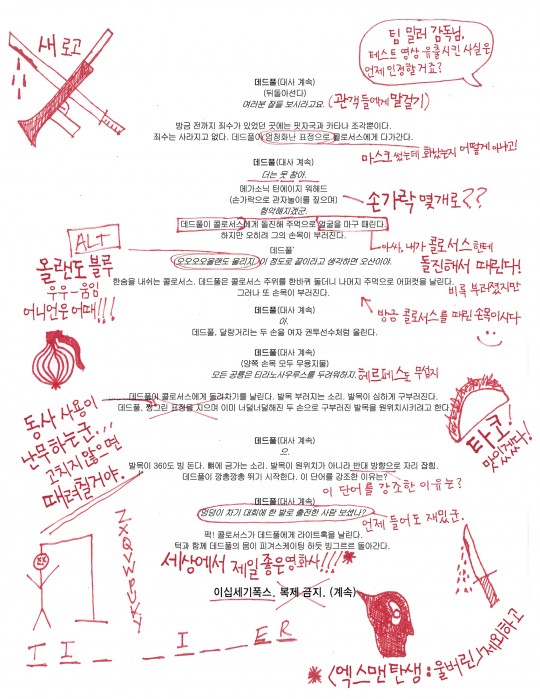 새 로고
팀 밀러 감독님,
테스트 영상 유출시킨 사실은
언제 인정할 거죠?
데드풀(대사 계속)
(뒤돌아선다)
여러분 잘들 보시라고요. (관객들에게 말걸기)
방금 전까지 죄수가 있었던 곳에는 핏자국과 카타나 조각뿐이다.
죄수는 사라지고 없다. 데드풀이 엄청화난 표정으로 콜로서스에게 다가간다.
마스크 썼는데 화났는지 어떻게 아냐고!
데드풀(대사 계속)
더는 못 참아.
메가소닉 틴에이지 워헤드
(손가락으로 관자놀이를 짚으며)
손가락 몇개로??
험악해지겠군.
데드풀이 콜로서스에게 돌진해 주먹으로 얼굴을 마구 때린다.
하지만 오히려 그의 손목이 부러진다.
아싸, 내가 콜로서스한테
돌진해서 때린다!
비록 부러졌지만
ALT
올랜도 블루
우우-움임
어니언은 어때!!!
데드풀'
오오오오올랜도 올리지 이 정도로 끝이라고 생각하면 오산이야.
한숨을 내쉬는 콜로서스. 데드풀은 콜로서스 주위를 한바퀴 돌더니 나머지 주먹으로 어퍼컷을 날린다.
그러나 또 손목이 부러진다.
방금 콜로서스를 때린 손목이시다
데드풀(대사 계속)
아.
데드풀, 달랑거리는 두 손을 여자 권투선수처럼 올린다.
데드풀(대사 계속)
(양쪽 손목 모두 무용지물)
모든 공룡은 티라노사우루스를 두려워하지. 헤르페스도 무섭지
데드풀이 콜로서스에게 돌려차기를 날린다. 발목 부러지는 소리. 발목이 심하게 구부러진다.
데드풀, 찡그린 표정을 지으며 이미 너덜너덜해진 두 손으로 구부러진 발목을 원위치시키려고 한다.
타코!
맛있겠다!
동사 사용이
난무하는군...
고치지 않으면
때려칠거야.
데드풀(대사 계속)
으.
발목이 360도 빙 돈다. 뼈에 금가는 소리. 발목이 원위치가 아니라 반대 방향으로 자리 잡힘.
데드풀이 깡총깡총 뛰기 시작한다. 이 단어를 강조한 이유는?
이 단어를 강조한 이유는?
데드풀(대사 계속)
엉덩이 차기 대회에 한 발로 출전한 사람 보셨나?
언제 들어도 재밌군.
퍽! 콜로서스가 데드풀에게 라이트훅을 날린다.
턱과 함께 데드풀의 몸이 피겨스케이팅 하듯 빙그르르 돌아간다.
세상에서 제일 좋은 영화사!!!*
이십세기폭스. 복제 금지. (계속)
T I _ _ _ I _ _ E R
* <엑스맨 탄생:울버린> 제외하고